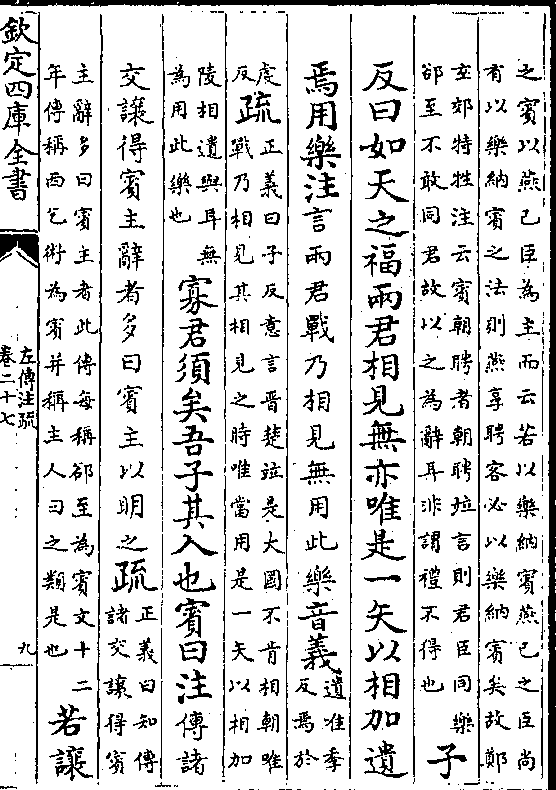 之賓以燕己臣為主而云若以樂納賓燕己之臣尚
有以樂納賓之法則燕享聘客必以樂納賓矣故鄭
玄郊特牲注云賓朝聘者朝聘竝言則君臣同樂
郤至不敢同君故以之為辭耳非謂禮不得也
子
反曰如天之福兩君相見無亦唯是一矢以相加遺
焉用樂注言兩君戰乃相見無用此樂音義
遺唯季
反焉於
虔
反
疏
正義曰子反意言晉楚竝是大國不肯相朝唯
戰乃相見其相見之時唯當用是一矢以相加
陵相遺與耳無
為用此樂也
寡君須矣吾子其入也賓曰注傳諸
交讓得賓主辭者多曰賓主以明之疏
正義曰知傳
諸交讓得賓
主辭多曰賓主者此傳每稱郤至為賓文十二
年傳稱西乞術為賓并稱主人曰之類是也
若讓
欽定四庫全書
左傳注疏
卷二十七
九